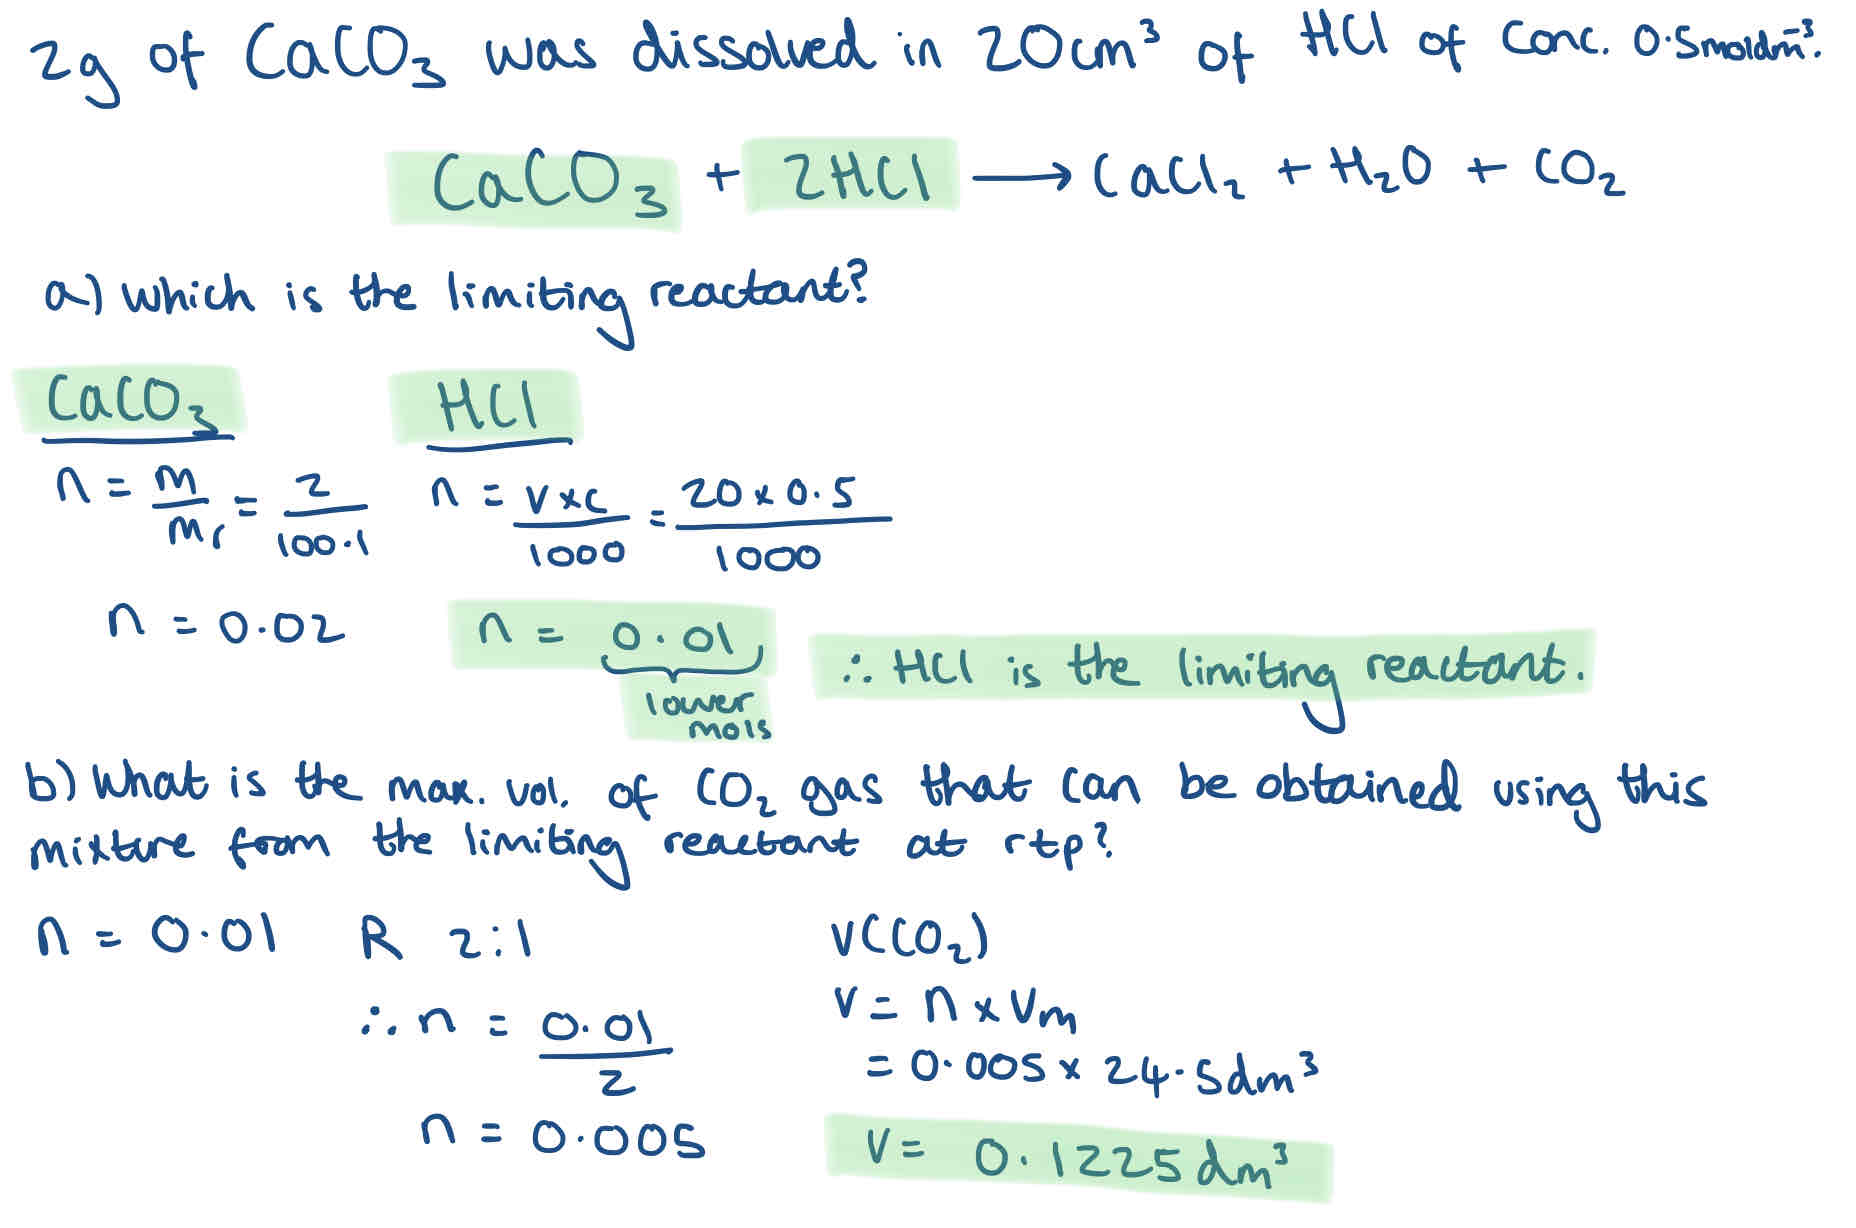 2g of CaCO₃ was dissolved in 20cm³ of HCl of conc. 0.5moldm⁻³.
CaCO₃ + 2HCl ⟶ CaCl₂ + H₂O + CO₂
a) which is the limiting reactant?
CaCO₃ HCl
n = m/mr = 2/100.1 n = v×c/1000 = 20 × 0.5/1000
n = 0.02 n = 0.01 ∴ HCl is the limiting reactant.
lower
mols
b) What is the max. vol. of CO₂ gas that can be obtained using this
mixture from the limiting reactant at rtp?
n = 0.01 R 2:1 v(CO₂)
∴ n = 0.01/2 v = n × Vm
= 0.005 × 24.5dm³
n = 0.005 v = 0.1225dm³